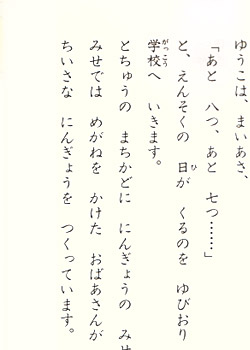 ゆうこは、まいあさ、
「あと 八つ、あと 七つ……」
と、えんそくの 日が くるのを ゆびおり
学校へ いきます。
とちゅうの まちかどに にんぎょうの みせ
みせでは めがねを かけた おばあさんが
ちいさな にんぎょうを つくっています。